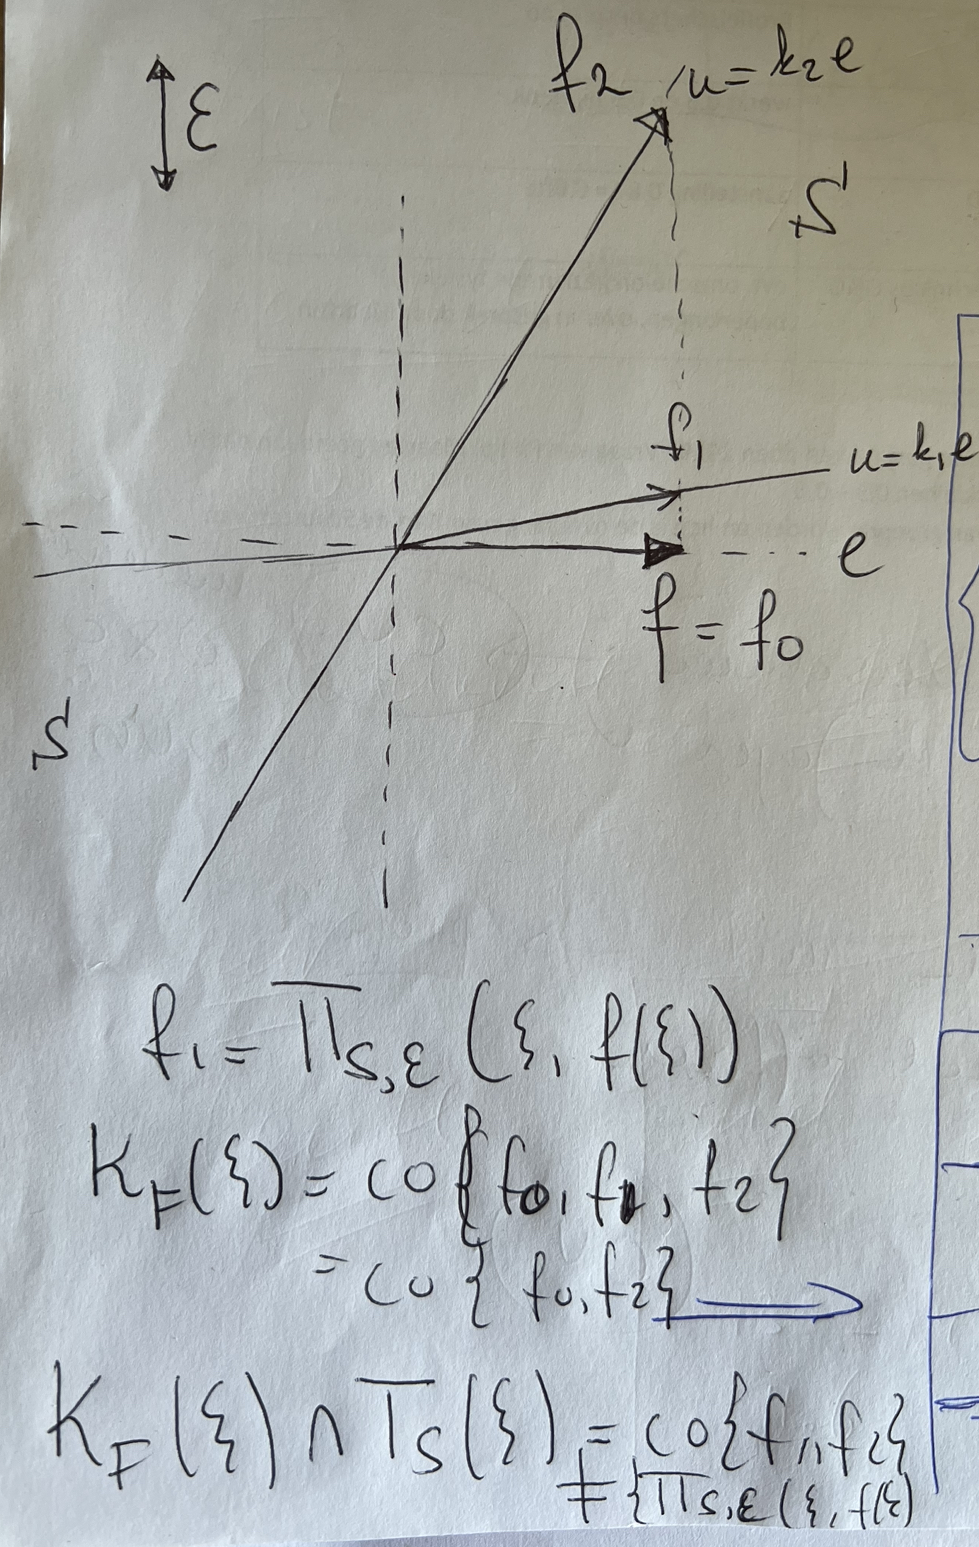 f2 u=k2e
ε
S
f1
u=k1e
e
f=f0
S
f1=ΠS,ε(ξ, f(ξ))
KF(ξ) = co{f0, f1, f2}
= co{f0, f2}
KF(ξ) ∩ TS(ξ) = co{f1, f2}
≠ {ΠS,ε(ξ, f(ξ)